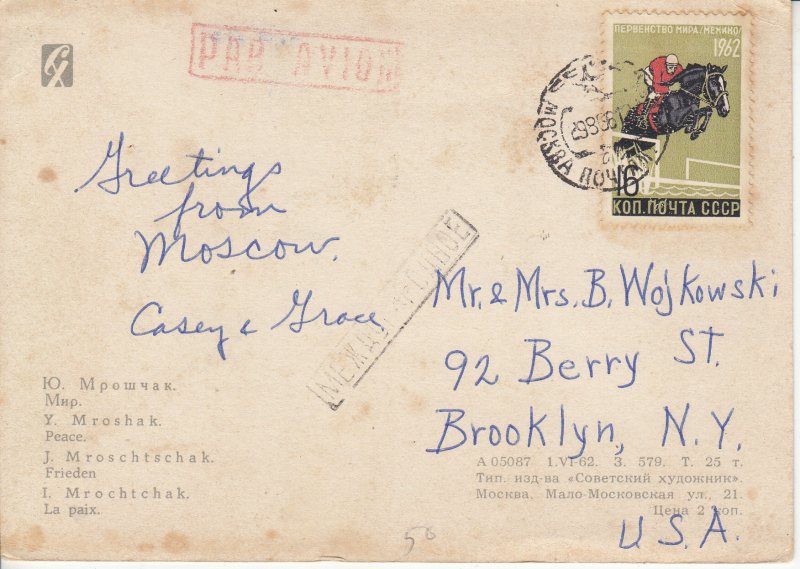 PAR AVION
ПЕРВЕНСТВО МИРА/МЕХИКО/
1962
МОСКВА ПОЧТАМТ
16
КОП. ПОЧТА СССР
Greetings
from
Moscow.
Casey & Grace
МЕЖДУНАРОДНОЕ
Mr. & Mrs. B. Wojkowski
92 Berry St.
Brooklyn, N.Y.
U.S.A.
Ю. Мрошчак.
Мир.
Y. Mroshak.
Peace.
J. Mroschtschak.
Frieden
I. Mrochtchak.
La paix.
А 05087 1.VI-62. З. 579. Т. 25 т.
Тип. изд-ва «Советский художник».
Москва, Мало-Московская ул., 21.
Цена 2 коп.
50